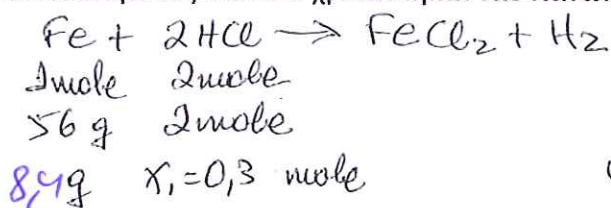 Fe + 2HCl → FeCl₂ + H₂
1mole 2mole
56 g 2mole
8,4g x₁=0,3 mole